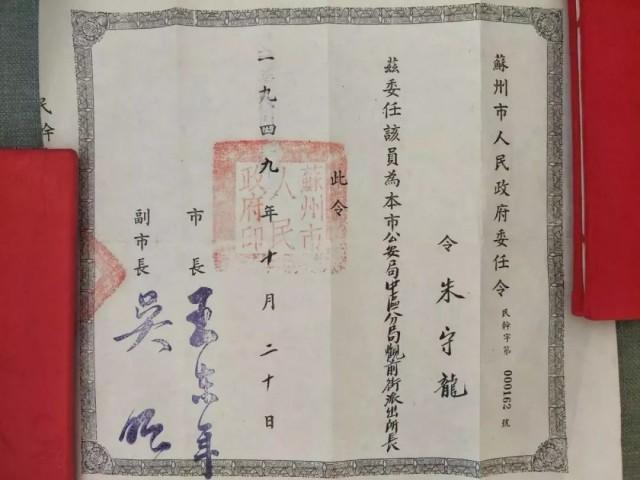 蘇州市人民政府委任令
民幹字第000162號
令朱守龍
茲委任該員為本市公安局中區分局觀前街派出所長
此令
蘇州市人民政府印
一九四九年十月二十日
市長
王東年
副市長
吳
民幹